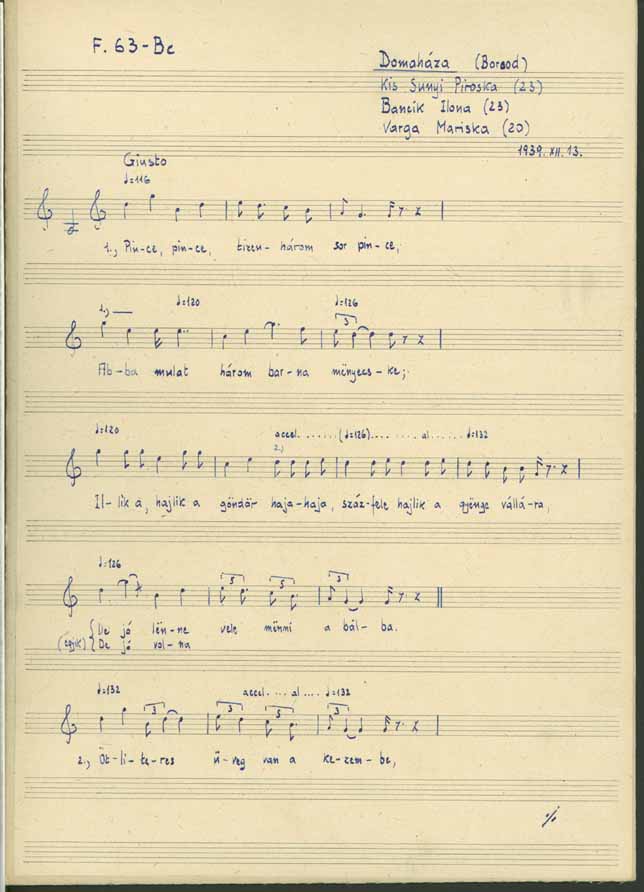 F. 63-Bc
Domaháza (Borsod)
Kis Sunyi Piroska (23)
Bancik Ilona (23)
Varga Mariska (20)
1939. XII. 13.
Giusto
♩=116
1., Pin-ce, pin-ce, tizen-három sor pin-ce,
2.,
♩=120
♩=126
3
Ab-ba mulat három bar-na mënyecs-ke;
♩=120
accel. ...... (♩=126).... ... al ...... ♩=132
2.,
Il-lik a, hajlik a göndör haja-haja, száz-fele hajlik a gyönge vállá-ra,
♩=126
5 5 3
De jó lën-ne vele mënni a bál-ba.
(egyik) De jó vol-na
♩=132
accel. ... al .... ♩=132
3 3 5 3
2., Öt-li-te-res ü-veg van a ke-zem-be,
%